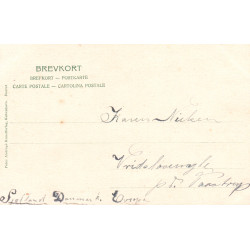 BREVKORT
BREFKORT — POSTKARTE
CARTE POSTALE — CARTOLINA POSTALE
Karen Nielsen
Vridsløsemagle
p. T. Taastrup
Sjælland Danmark Europa